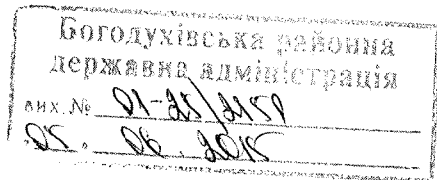 Богодухівська районна
державна адміністрація
вих.№ 01-25/2150
05. 06. 2015